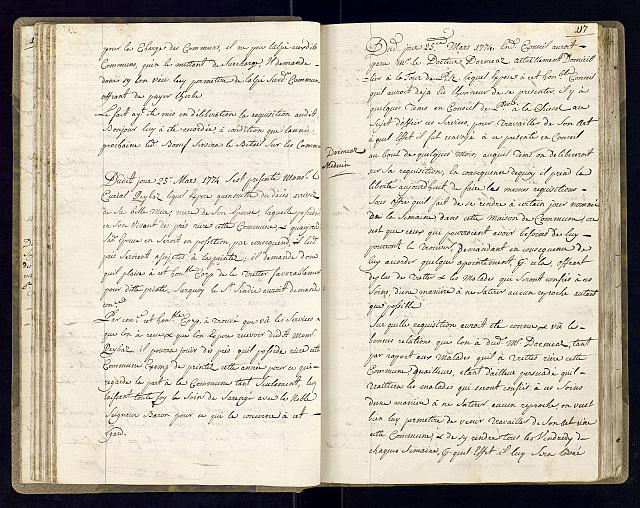 pour la Charge des Communs, il ne peu
Communs, qu'en le mettant de Surcharge, Il demande
donc sy l'on veu luy permettre de
offrant de payer l'herbe
Le fait ayt été mis en deliberation la requisition audit
Bonjour luy a été accordée à condition que l'année
prochaine led. Bonj Servira le Betail Sur les Communs
Dudit jour 25e Mars 1774 S'est presenté Monsr le
Curial Reybaz lequel expose qu'ensuitte du décès arrivé
de Sa belle Mere, mere de Son Epouse, laquelle possedoit
en Son vivant des prés riere cette Commune, & quayant
Sad. Epouse en Seroit en position par consequent, & led.
prés Seroient assujetis à la printée; il demande donc
qu'il plaise à cet honble Corp de le traiter favorablement
pour ditte printée, Surquoy le Sr Sindic auroit demandé
Par conse. cet honble Corp, à trouvé que vû les Services
que lon à recu & que lon espere recevoir dudit Monsr
Reybaz, il pourra jouir des prés quil possede riere cette
Commune Exemp de printée cette année pour ce qui
regarde la part à la Commune tant Seulement, luy
laissant toute foy le Soin de S'arranger avec le Noble
Seigneur Baron pour ce qui le concerne à cet
Egard.
117
Dud. jour 25e Mars 1774 led. Conseil auroit
paru Mr le Docteur Dormeaz actuellement Domicilié
à la Tour de Peilz lequel expose à cet honble Conseil
quil auroit déja eu l'honneur de se presenter, il y à
quelques tems en Conseil de à la Cheval au
Sujet d'offrir ses Services, pour travailler de Son art
à quel Effet il fut renvoyé à se presenter en Conseil
au bout de quelques Mois, auquel tems on delibereroit
sur Sa requisition, En consequence dequoy il prend la
liberté aujourdhuy de faire les mêmes requisitions
Sous offre quil fait de se rendre à certain jour nommé
de la Semaine dans cette Maison de Commune, en
sort que ceux qui pourroient avoir besoins de luy
pourront le trouver, Demandant en consequence de
luy accorder quelque apointement, & cela, offrant
de plus de traiter les Malades qui Seront confiés à ses
Soins, d'une maniere à ne s'attirer aucun reproche autant
que possible
Dormeaz
Médecin
Sur quelle requisition auroit été connu & vû les
bonnes relations que lon à dud. Mr Dormeaz, tant
par raport aux Malades quil à traittés riere cette
Commune, Dailleurs, étant d'ailleur persuadé quil
traittera les malades qui seront confiés à ses Soins
d'une maniere à ne Sattirer aucun reproche, on veut
bien luy permettre de venir travailler de Son art riere
cette Commune, & de sy rendre tous les Vendredy de
chaque Semaine, & quel Effet il luy Sera livré